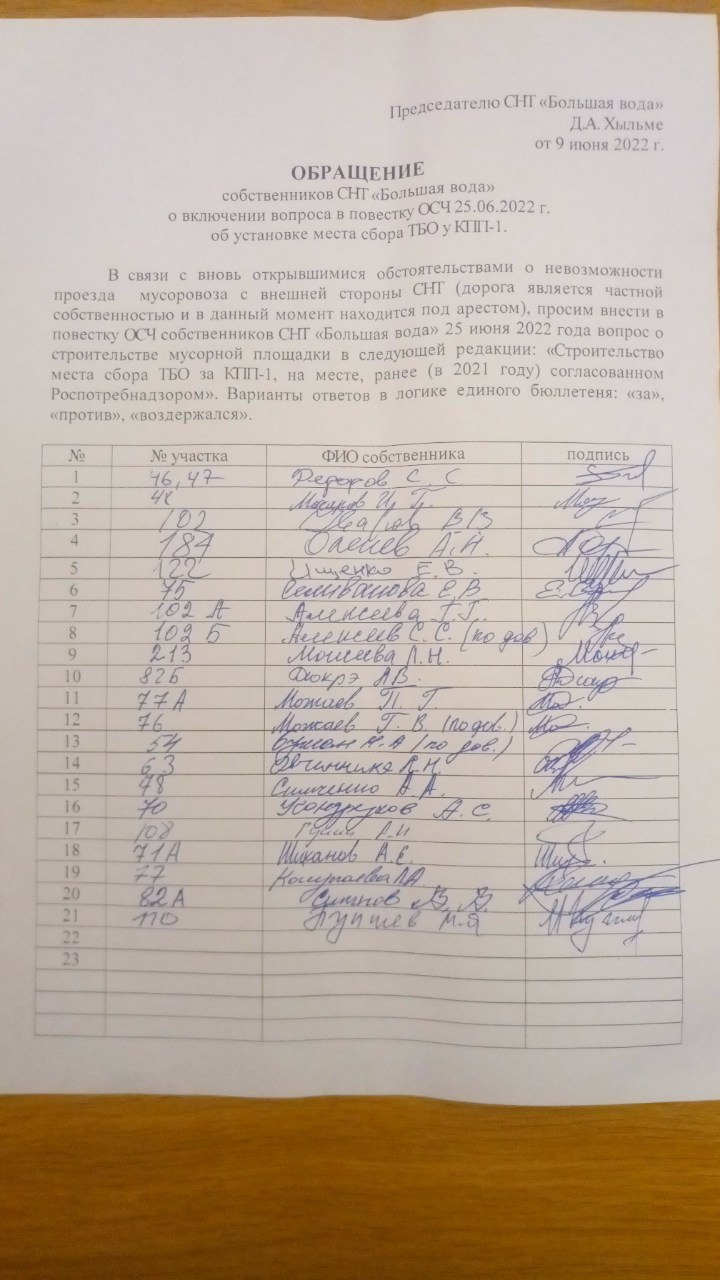 Председателю СНТ «Большая вода»
Д.А. Хыльме
от 9 июня 2022 г.
ОБРАЩЕНИЕ
собственников СНТ «Большая вода»
о включении вопроса в повестку ОСЧ 25.06.2022 г.
об установке места сбора ТБО у КПП-1.
В связи с вновь открывшимися обстоятельствами о невозможности
проезда мусоровоза с внешней стороны СНТ (дорога является частной
собственностью и в данный момент находится под арестом), просим внести в
повестку ОСЧ собственников СНТ «Большая вода» 25 июня 2022 года вопрос о
строительстве мусорной площадки в следующей редакции: «Строительство
места сбора ТБО за КПП-1, на месте, ранее (в 2021 году) согласованном
Роспотребнадзором». Варианты ответов в логике единого бюллетеня: «за»,
«против», «воздержался».
№ № участка ФИО собственника подпись
1 46, 47 Федоров С. С
2
3 102 В.В
4 184 Оленев А.Н.
5 122 Ищенко Е. В.
6 75 Селиванова Е.В
7 102 А Алексеева Т.Г.
8 102 Б Алексеев С. С. (по дов)
9 213 Моисеева Л.Н.
10 82Б Дюкрэ А.В.
11 77А Можаев П. Г.
12 76 Можаев Г. В. (по дов.)
13 54 Н.А (по дов.)
14 63 Овчинника Л.Н
15 78 Симченко А А.
16 70 А. С.
17 108
18 71А Шиканов А.Е.
19 77
20 82А В. В.
21 110 М.Я
22
23